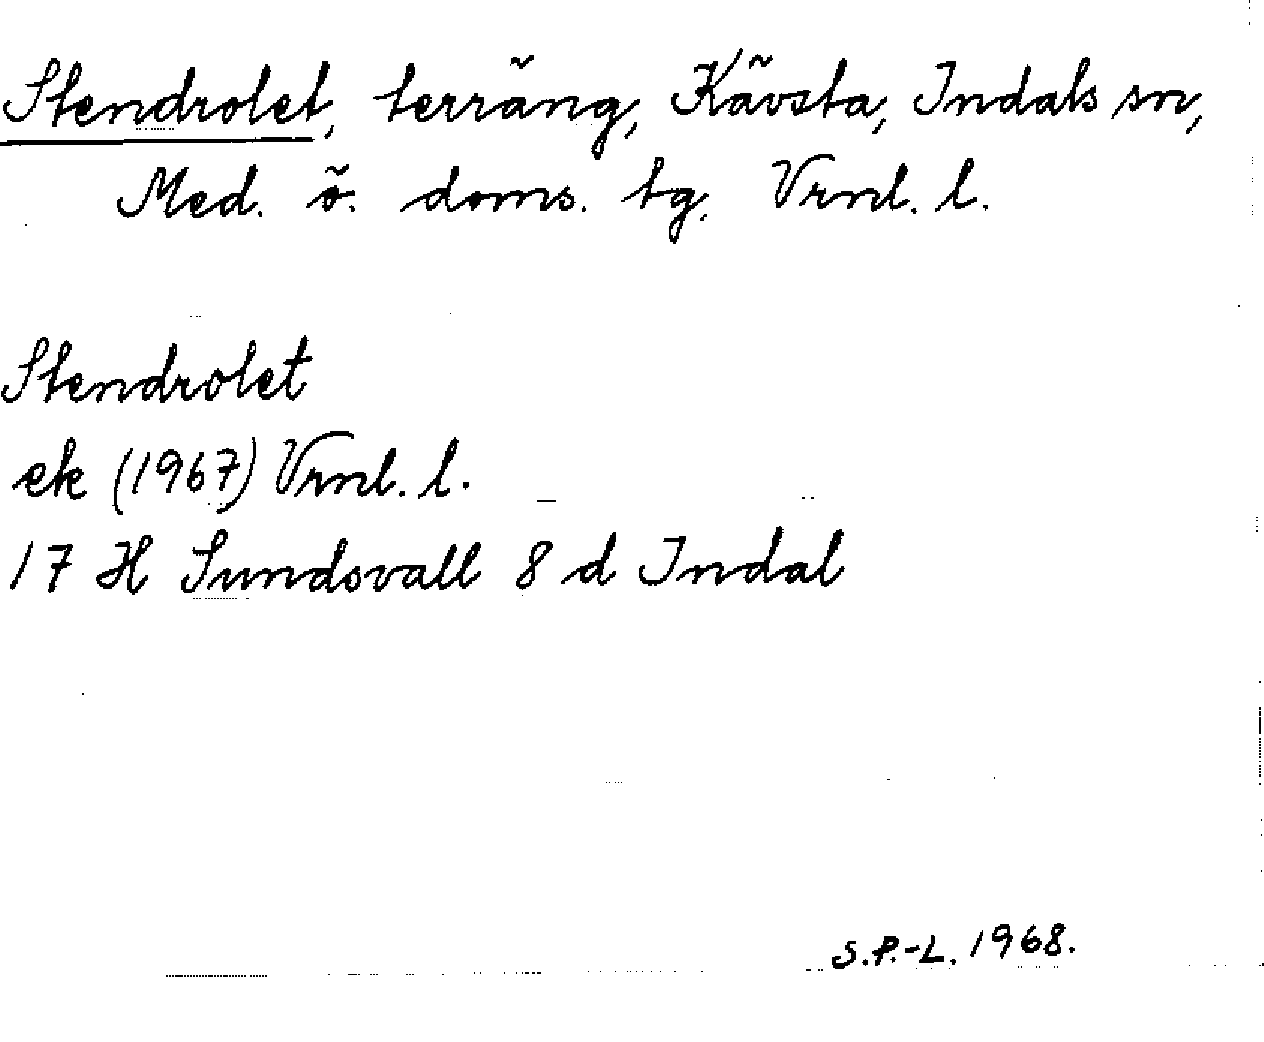 Stendrolet, terräng, Kävsta, Indals sn,
Med. ö. doms. tg. Vrnl. l.
Stendrolet
ek (1967) Vrnl. l.
17 H Sundsvall 8 d Indal
S.P.-L. 1968.